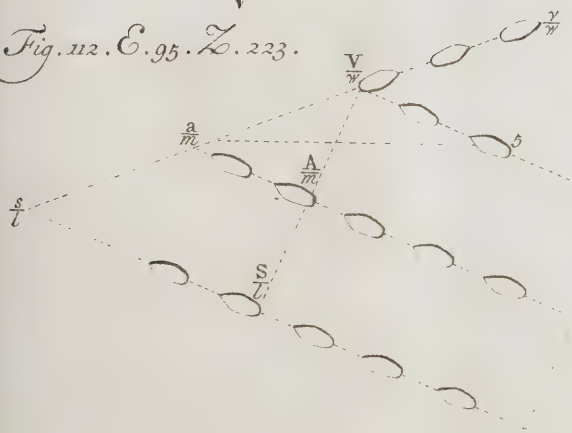 Fig. 112. E. 95. Z. 223.
V
w
v
w
a
m
5
A
m
s
l
S
l